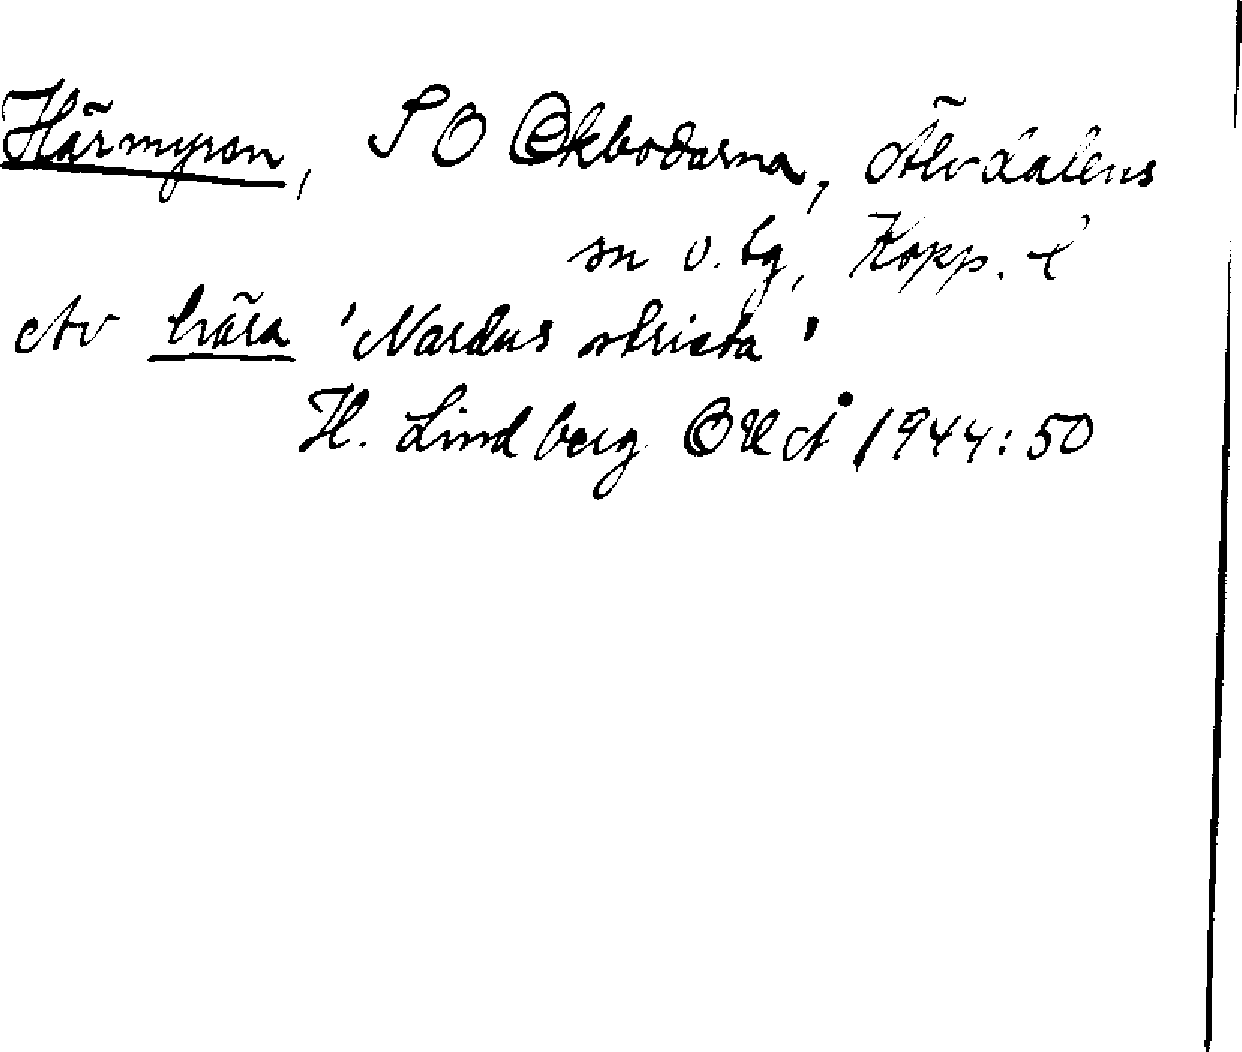 Härmyren, SO Ekbodarna, Älvdalens
sn o. tg, Kopp. l
Av hära 'Nardus stricta'
H. Lindberg OUÅ 1944:50